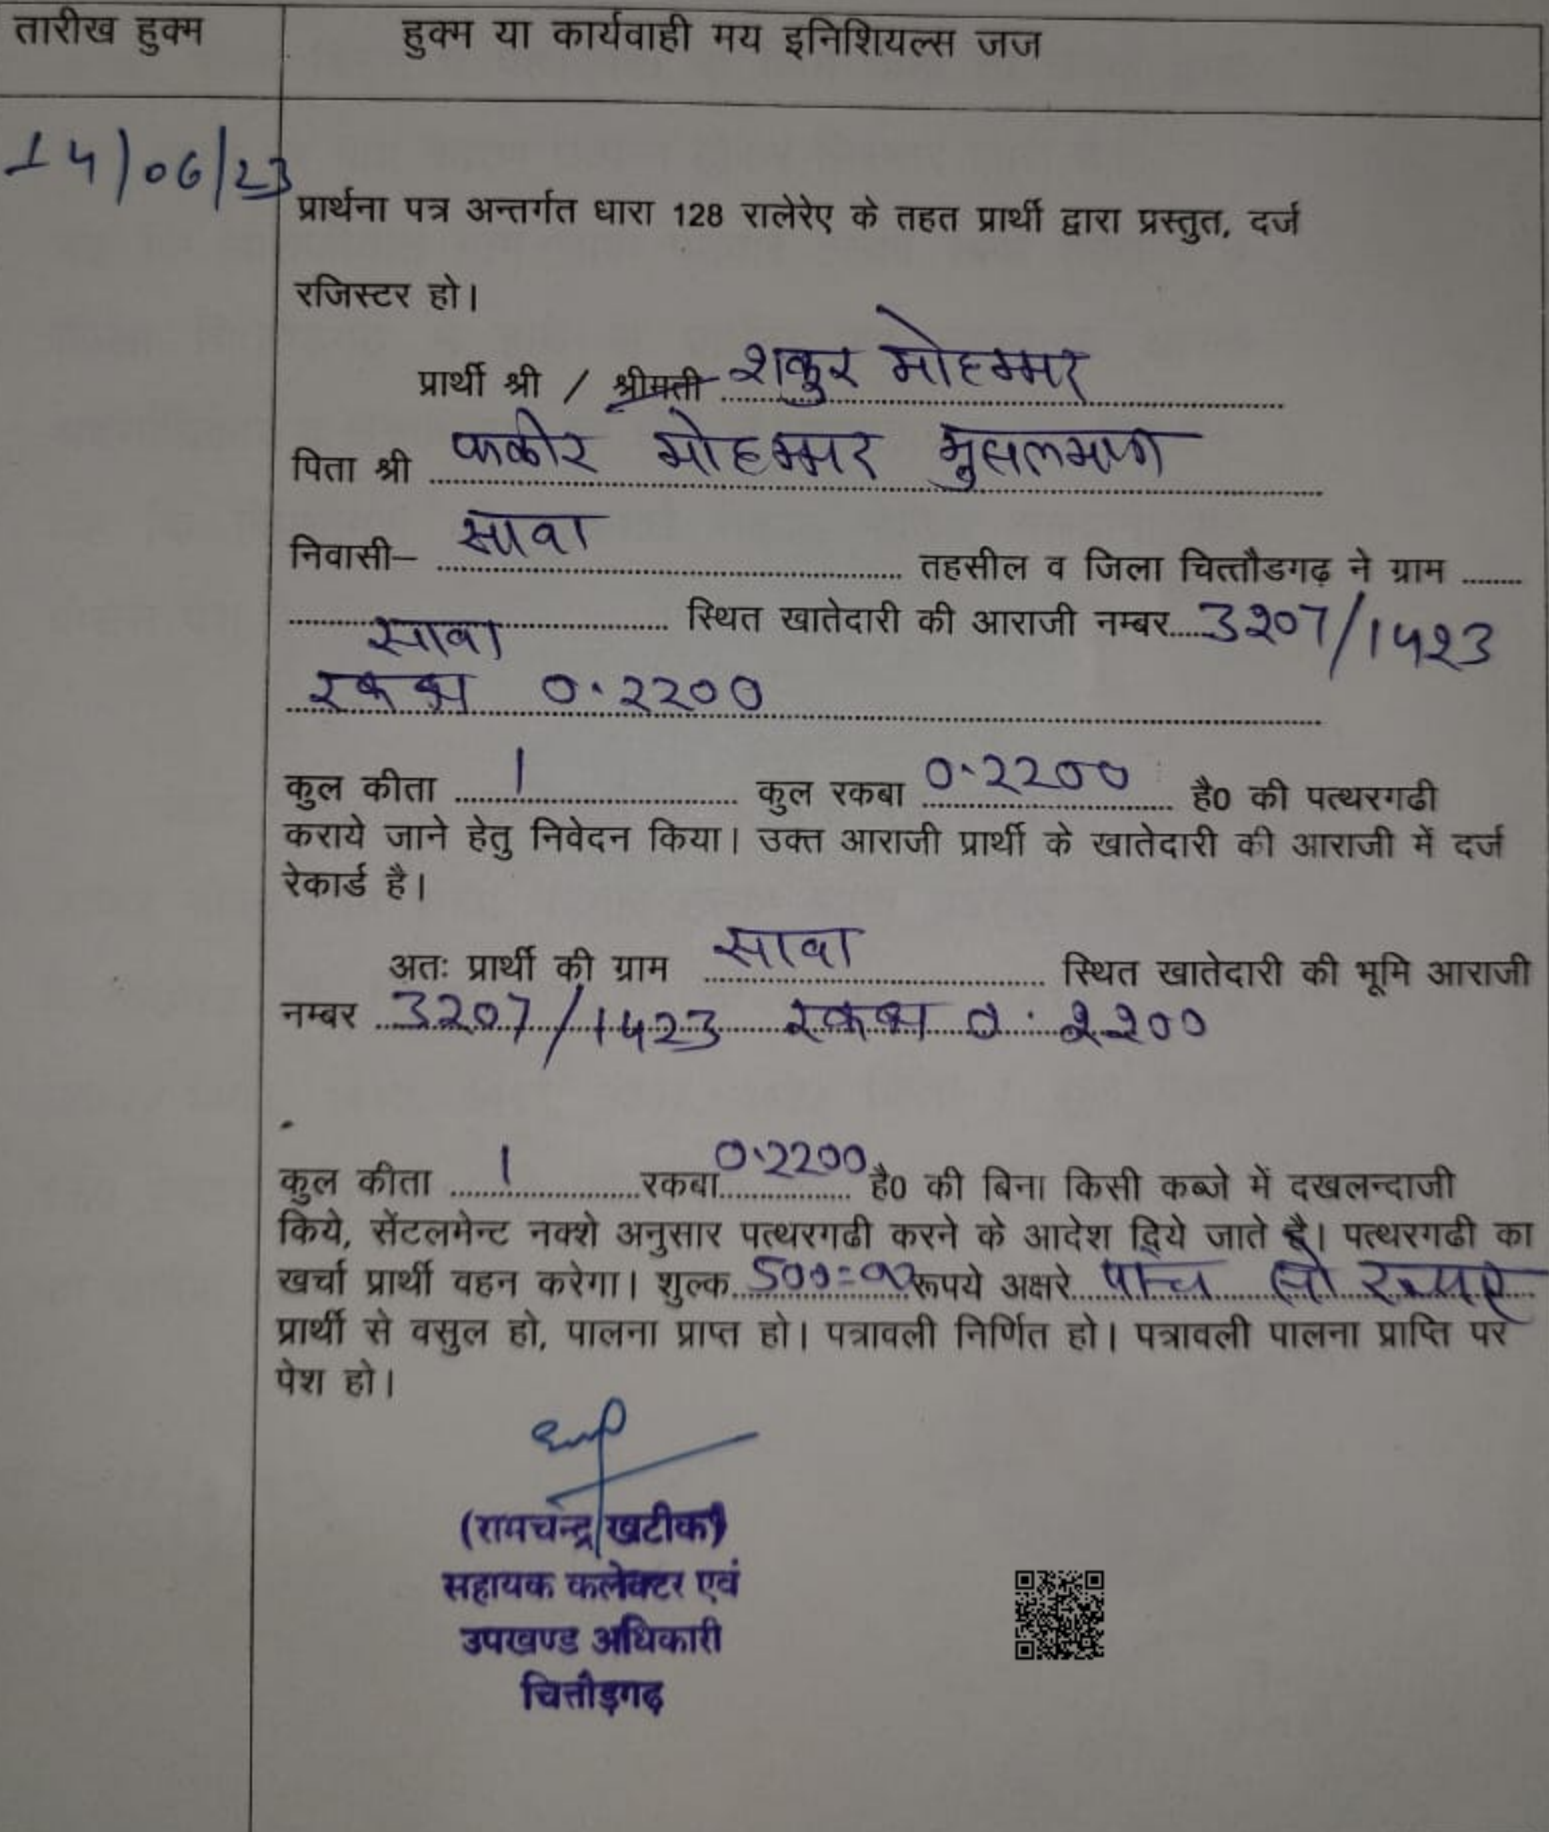 तारीख हुक्म
हुक्म या कार्यवाही मय इनिशियल्स जज
14/06/23
प्रार्थना पत्र अन्तर्गत धारा 128 रालेरेए के तहत प्रार्थी द्वारा प्रस्तुत, दर्ज
रजिस्टर हो।
प्रार्थी श्री / श्रीमती शकुर मोहम्मद
पिता श्री फकीर मोहम्मद मुसलमान
निवासी– सावा तहसील व जिला चित्तौडगढ़ ने ग्राम ........
सावा स्थित खातेदारी की आराजी नम्बर 3207/1423
रकबा 0.2200
कुल कीता 1 कुल रकबा 0.2200 है0 की पत्थरगढी
कराये जाने हेतु निवेदन किया। उक्त आराजी प्रार्थी के खातेदारी की आराजी में दर्ज
रेकार्ड है।
अतः प्रार्थी की ग्राम सावा स्थित खातेदारी की भूमि आराजी
नम्बर 3207/1423 रकबा 0.2200
कुल कीता 1 रकबा 0.2200 है0 की बिना किसी कब्जे में दखलन्दाजी
किये, सेंटलमेन्ट नक्शे अनुसार पत्थरगढी करने के आदेश दिये जाते है। पत्थरगढी का
खर्चा प्रार्थी वहन करेगा। शुल्क 500=00 रूपये अक्षरे पान्च सो रूपए
प्रार्थी से वसुल हो, पालना प्राप्त हो। पत्रावली निर्णित हो। पत्रावली पालना प्राप्ति पर
पेश हो।
(रामचन्द्र खटीक)
सहायक कलेक्टर एवं
उपखण्ड अधिकारी
चित्तौड़गढ़